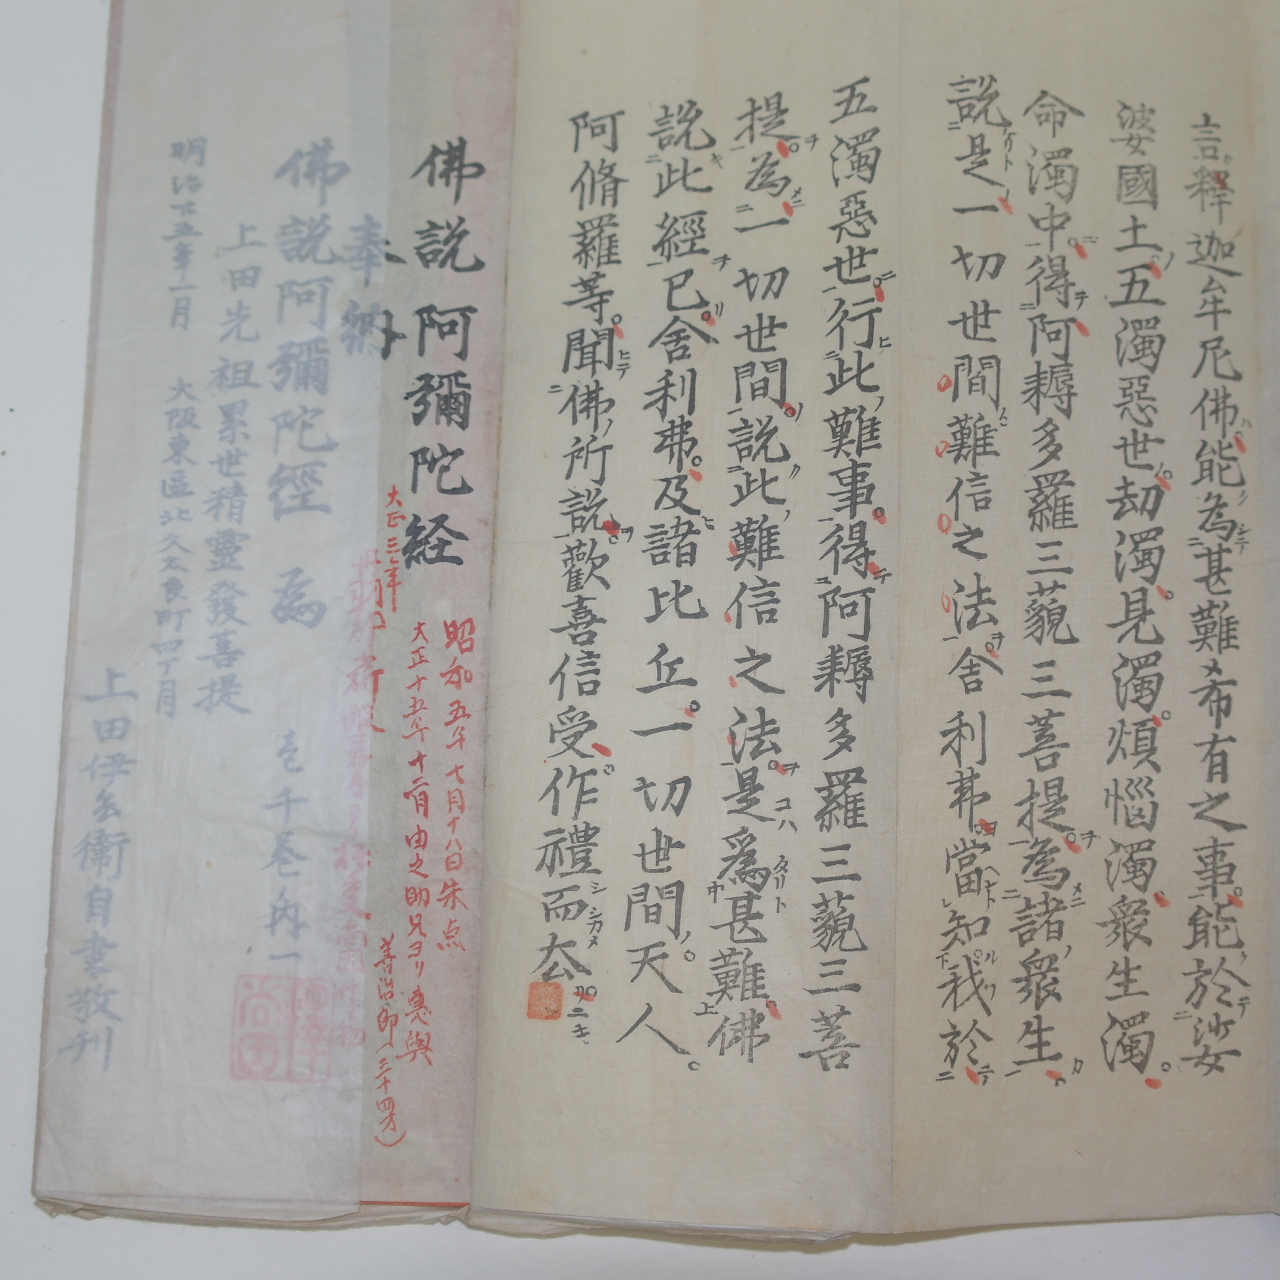 言釋迦牟尼佛能為甚難希有之事能於娑
婆國土五濁惡世劫濁見濁煩惱濁衆生濁
命濁中得阿耨多羅三藐三菩提為諸衆生
説是一切世間難信之法舍利弗當知我於
五濁惡世行此難事得阿耨多羅三藐三菩
提為一切世間説此難信之法是為甚難佛
説此經已舍利弗及諸比丘一切世間天人
阿脩羅等聞佛所説歡喜信受作禮而去
佛説阿彌陀経
昭和五年七月十八日朱点
大正十五年十二月由之助兄ヨリ恵與
善治郎(三十四才)
奉納
佛説阿彌陀經 為 壱千巻内一
上田先祖累世精靈發菩提
明治廿五年一月 大阪東區北久太良町四丁月
上田伊兵衛自書敬刊